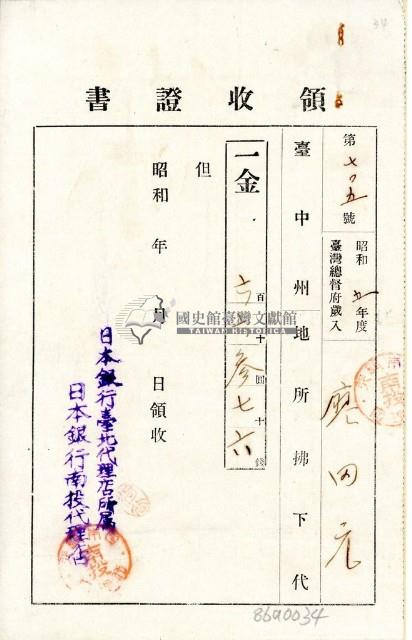 領收證書
第七〇五號
昭和五年度
臺灣總督府歲入
廖四元
臺中州地所拂下代
一金
百十圓十錢
參七六
但
昭和 年 月 日領收
日本銀行臺北代理店所屬
日本銀行南投代理店
國史館臺灣文獻館
TAIWAN HISTORICA
34
86a0034